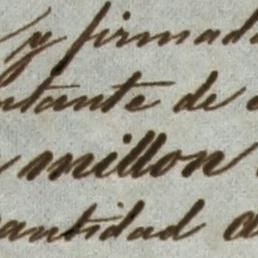 y firmada
ntante de
millon
cantidad